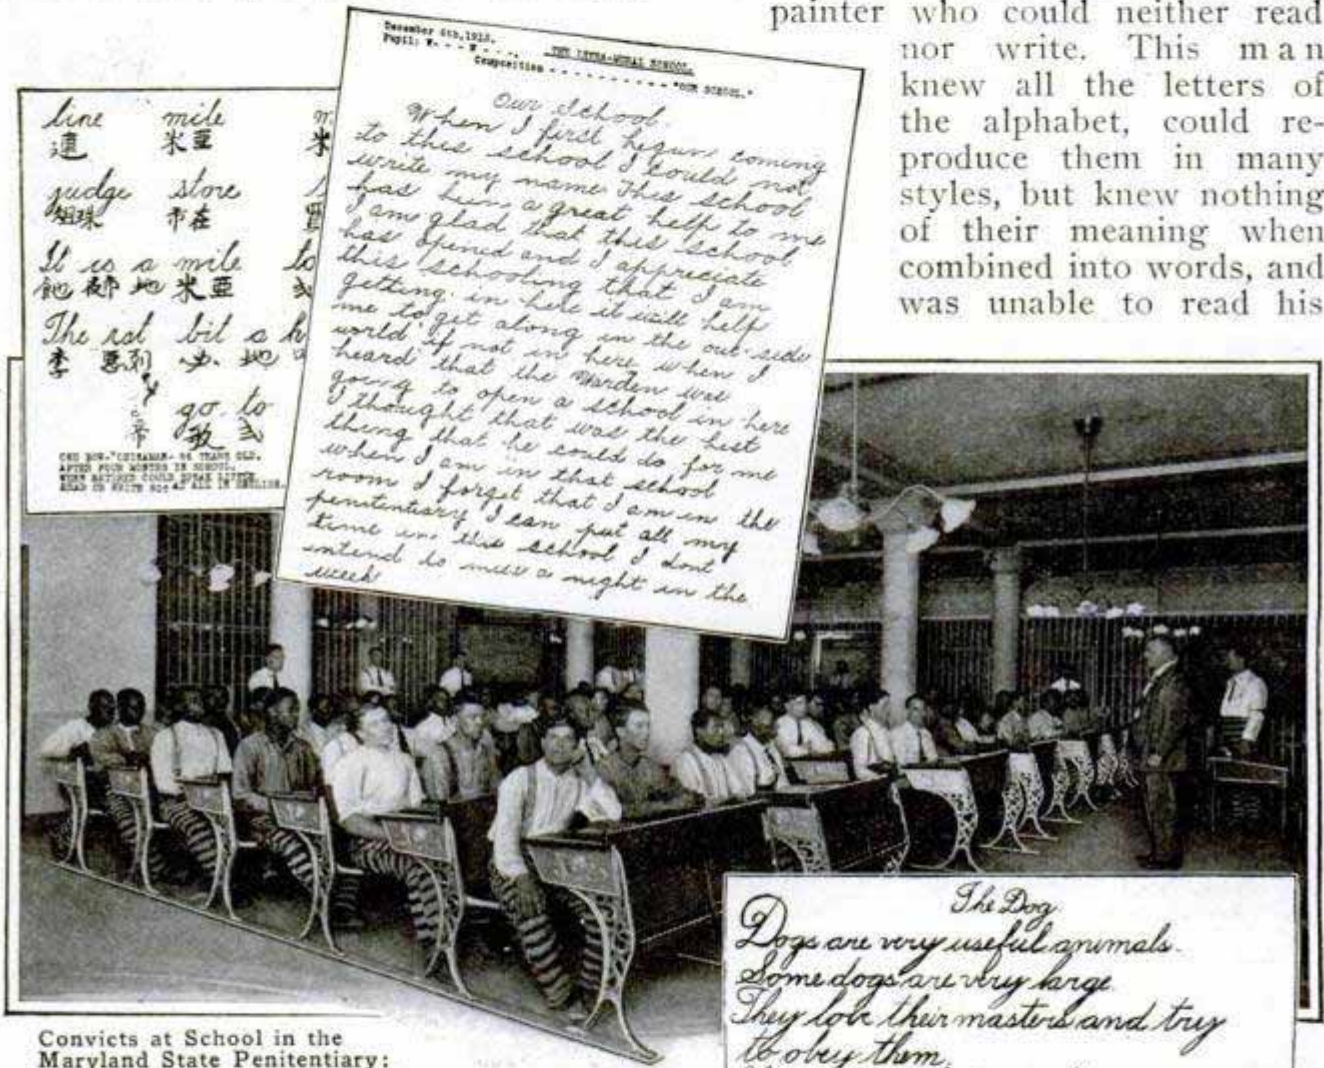 painter who could neither read
nor write. This man
knew all the letters of
the alphabet, could re-
produce them in many
styles, but knew nothing
of their meaning when
combined into words, and
was unable to read his
line mile m
米亞 米
judge store
市在
It is a mile to
地米亞
The rat bit a h
李 必 地
go to
December 6th, 1912.
Pupil: W. - - W - - -, THE INTRA-MURAL SCHOOL.
Composition - - - - - - - - - - "OUR SCHOOL."
Our School.
When I first begun coming
to this school I could not
write my name This school
has been a great help to me
I am glad that this school
has opened and I appreciate
this schooling that I am
getting in here it will help
me to get along in the out-side
world if not in here when I
heard that the Warden was
going to open a school in here
I thought that was the best
thing that he could do for me
when I am in that school
room I forget that I am in the
penitentiary I can put all my
time in this school I dont
intend to miss a night in the
week
AFTER FOUR MONTHS IN SCHOOL.
WHEN ENTERED COULD SPEAK LITTLE,
READ OR WRITE NOT AT ALL IN ENGLISH.
Convicts at School in the
Maryland State Penitentiary:
The Dog
Dogs are very useful animals.
Some dogs are very large.
They love their masters and try
to obey them.